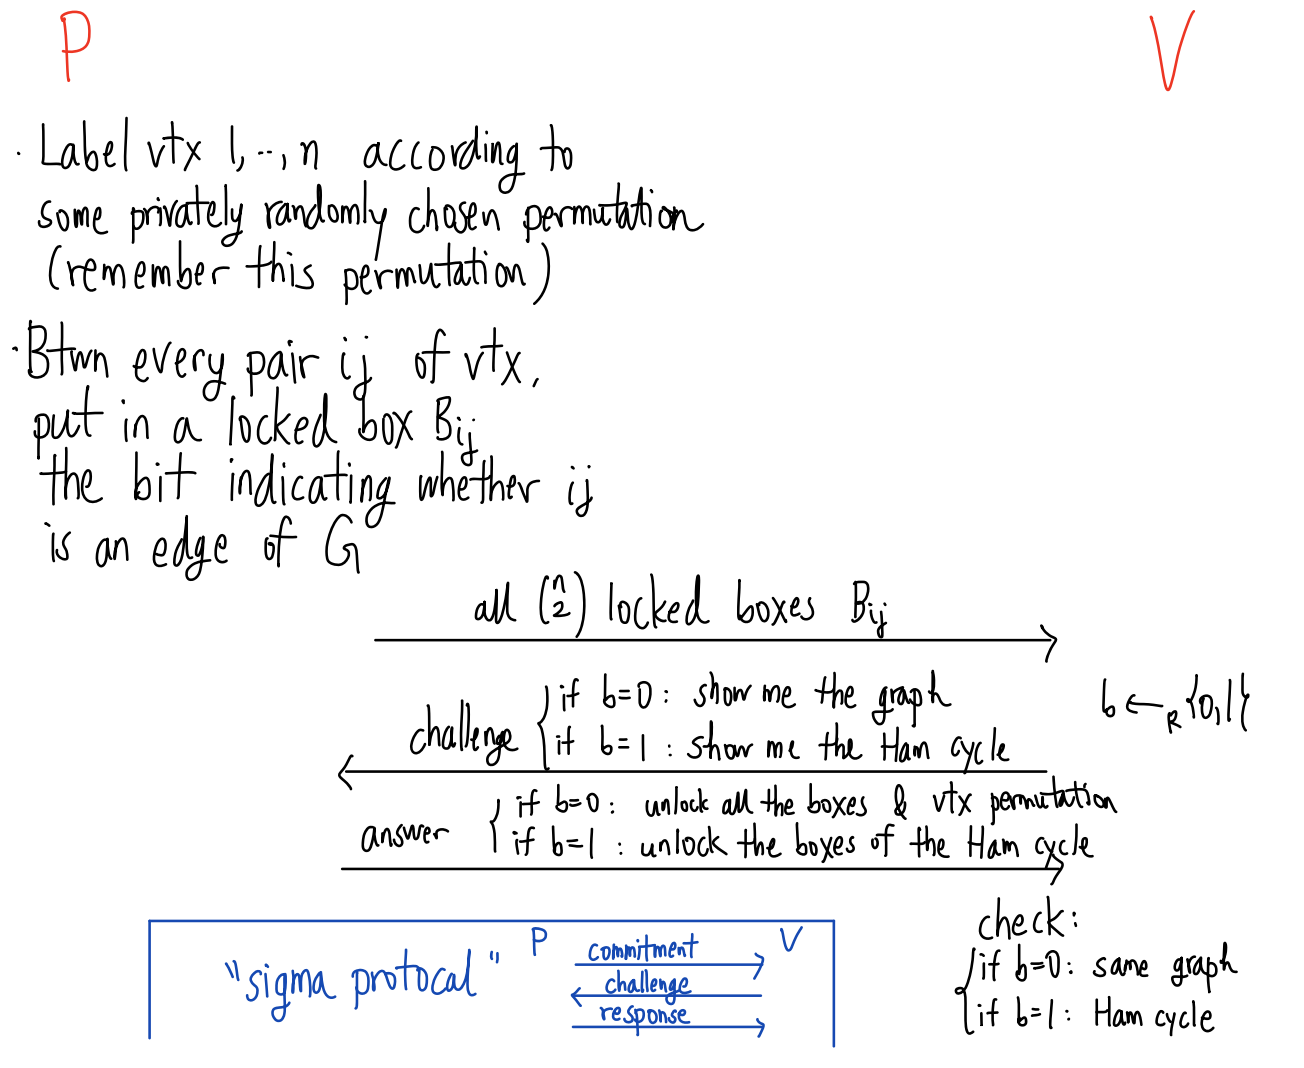 P V
· Label vtx 1,..,n according to
some privately randomly chosen permutation
(remember this permutation)
· Btwn every pair ij of vtx,
put in a locked box Bij
the bit indicating whether ij
is an edge of G
all (n 2) locked boxes Bij
b ←R {0,1}
challenge { if b=0: show me the graph
if b=1: show me the Ham cycle
answer { if b=0: unlock all the boxes & vtx permutation
if b=1: unlock the boxes of the Ham cycle
check:
{ if b=0: same graph
if b=1: Ham cycle
"sigma protocal" P V
commitment
challenge
response